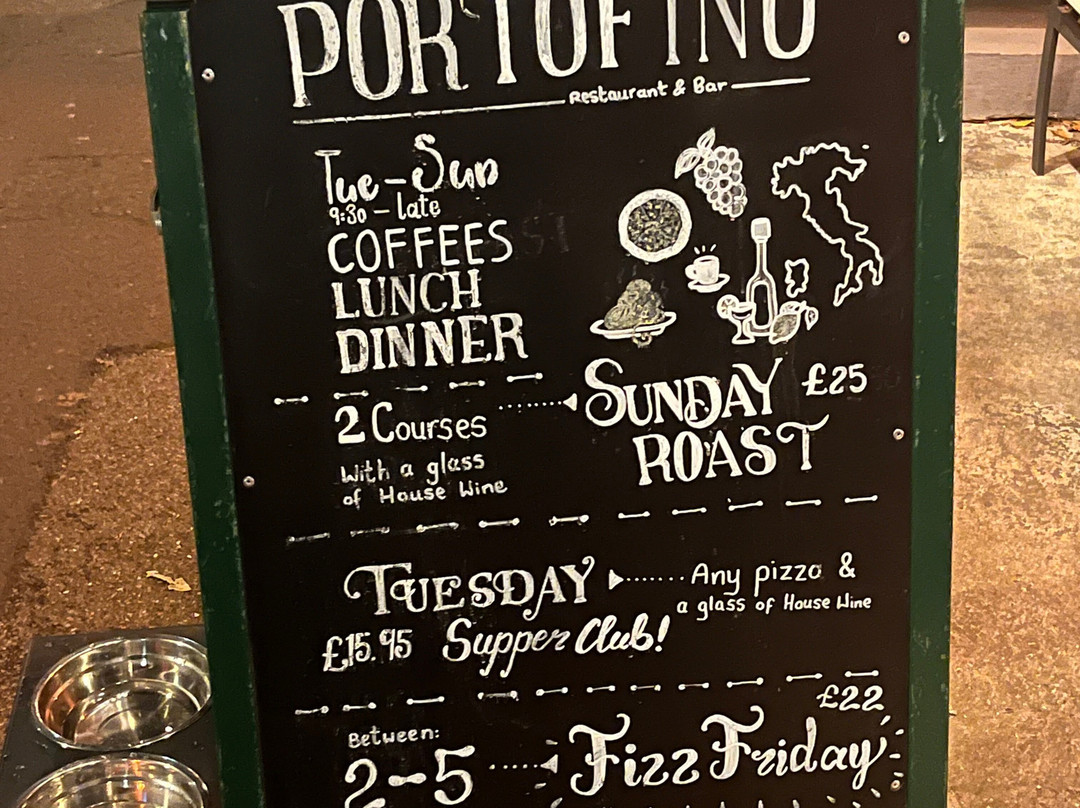 PORTOFINO
Restaurant & Bar
Tue-Sun
9:30 - late
COFFEES
LUNCH
DINNER
2 Courses
With a glass
of House Wine
SUNDAY £25
ROAST
TUESDAY
£15.95 Supper Club!
Any pizza &
a glass of House Wine
Between:
2-5
£22
Fizz Friday